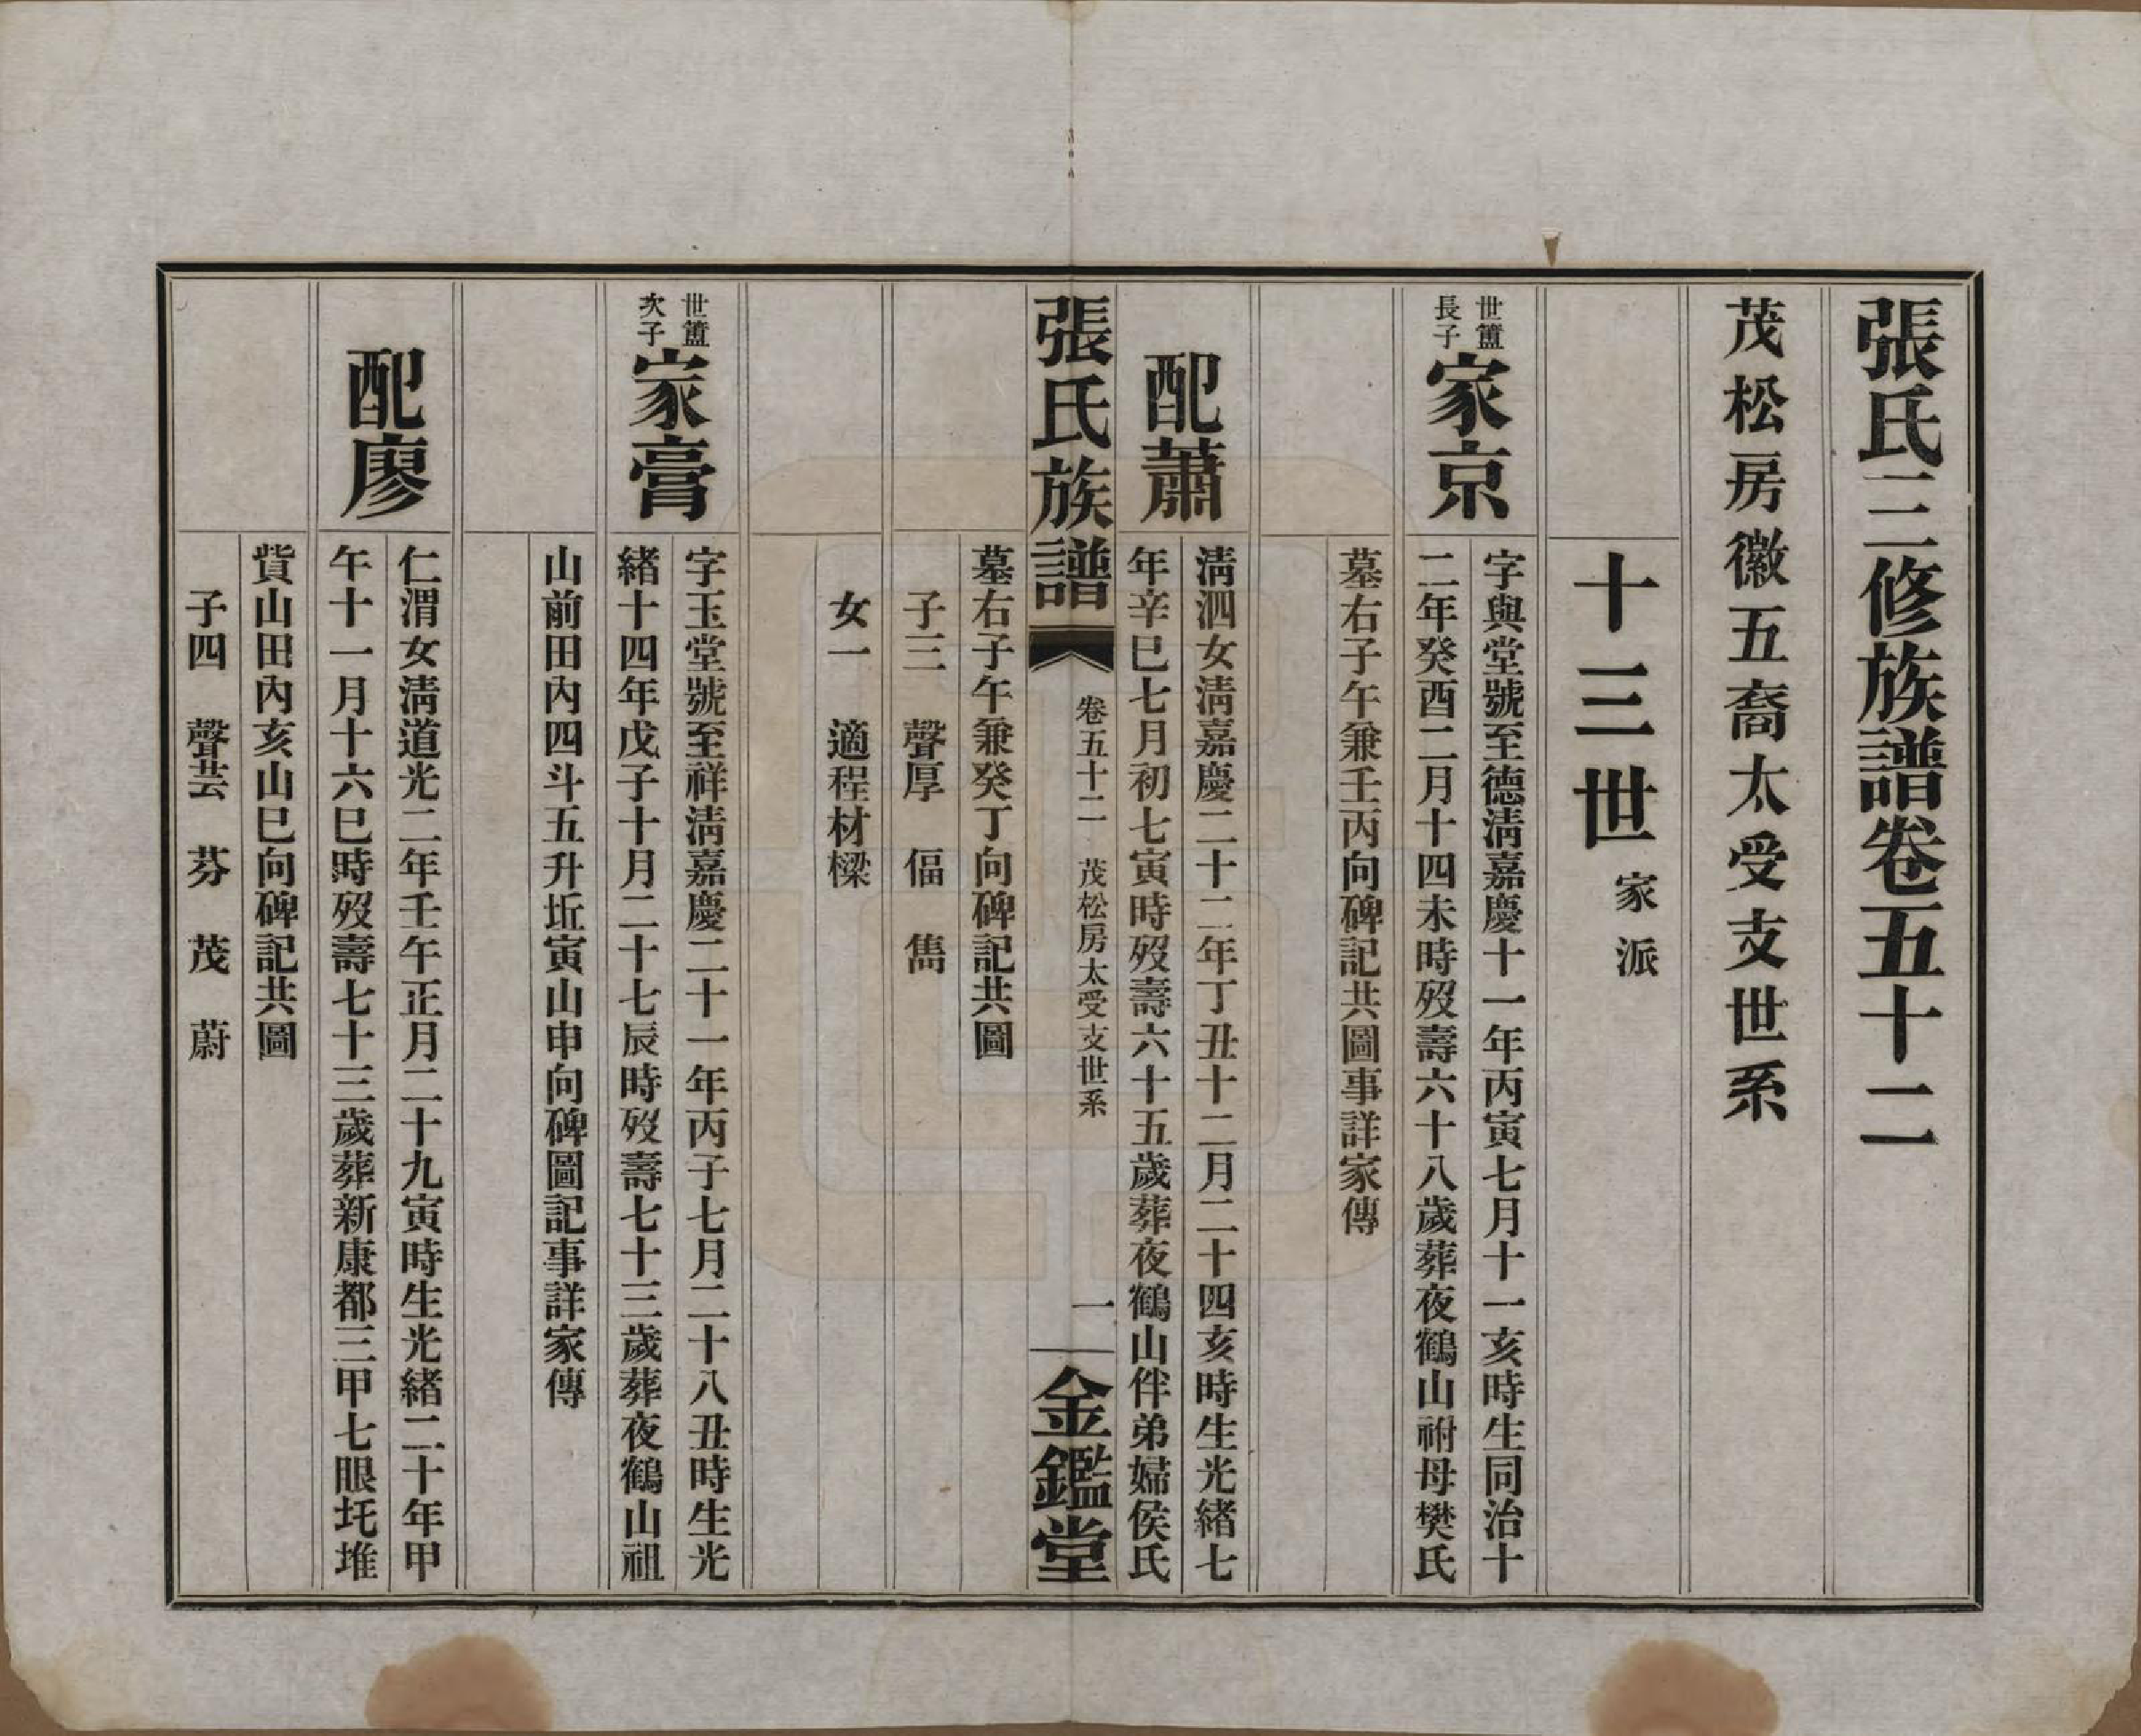 張氏三修族譜卷五十二
茂松房徽五裔太受支世系
十三世 家派
世簠
長子
家京
字與堂號至德淸嘉慶十一年丙寅七月十一亥時生同治十
二年癸酉二月十四未時歿壽六十八歲葬夜鶴山祔母樊氏
墓右子午兼壬丙向碑記共圖事詳家傳
配蕭
淸泗女淸嘉慶二十二年丁丑十二月二十四亥時生光緒七
年辛巳七月初七寅時歿壽六十五歲葬夜鶴山伴弟婦侯氏
張氏族譜
卷五十二 茂松房太受支世系
一
金鑑堂
墓右子午兼癸丁向碑記共圖
子三 聲厚 偪 雋
女一 適程材樑
世簠
次子
家膏
字玉堂號至祥淸嘉慶二十一年丙子七月二十八丑時生光
緒十四年戊子十月二十七辰時歿壽七十三歲葬夜鶴山祖
山前田內四斗五升坵寅山申向碑圖記事詳家傳
配廖
仁渭女淸道光二年壬午正月二十九寅時生光緒二十年甲
午十一月十六巳時歿壽七十三歲葬新康都三甲七眼圫堆
貲山田內亥山巳向碑記共圖
子四 聲芸 芬 茂 蔚